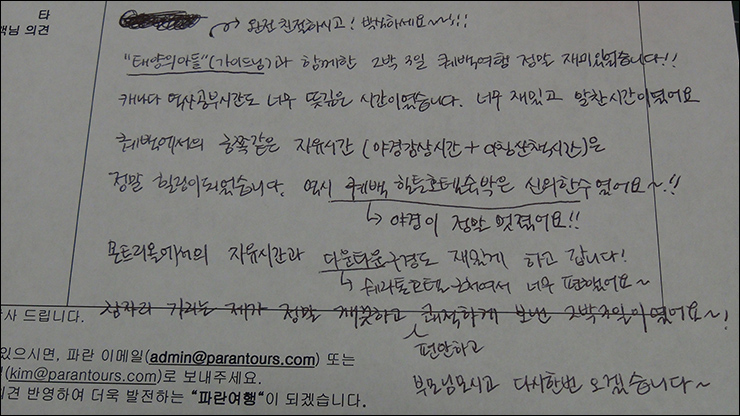 타
객님 의견
완전 친절하시고! 박식하세요~!!!
"태양의아들"(가이드님)과 함께한 2박 3일 퀘벡여행 정말 재미있었습니다!!
캐나다 역사공부시간도 너무 뜻깊은 시간이였습니다. 너무 재밌고 알찬시간이였어요
퀘벡에서의 흡족같은 자유시간 (야경감상시간 + 아침산책시간)은
정말 힐링이되었습니다. 역시 퀘벡 힐튼호텔숙박은 신의한수였어요~!!
→ 야경이 정말 멋졌어요!!
몬트리올에서의 자유시간과 다운타운구경도 재밌게 하고 갑니다!
→ 쉐라톤호텔 근처여서 너무 편했어요~
잠자리 가리는 제가 정말 깨끗하고 쾌적하게 보낸 2박3일이였어요~!
편안하고
부모님모시고 다시한번 오겠습니다~
사 드립니다.
있으시면, 파란 이메일(admin@parantours.com) 또는
(kim@parantours.com)로 보내주세요.
의견 반영하여 더욱 발전하는 "파란여행"이 되겠습니다.